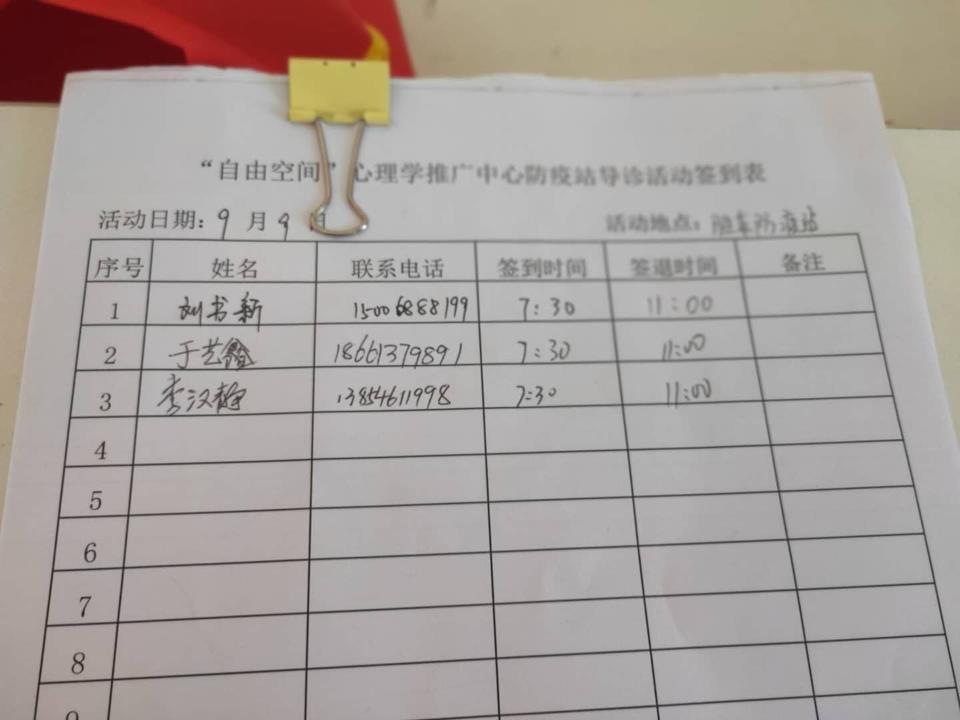 “自由空间”心理学推广中心防疫站导诊活动签到表
活动日期：9 月 9 日 活动地点：防疫站
序号 姓名 联系电话 签到时间 签退时间 备注
1 刘书新 15006888199 7:30 11:00
2 于艺鑫 18661379891 7:30 11:00
3 李汉静 13854611998 7:30 11:00
4
5
6
7
8
9